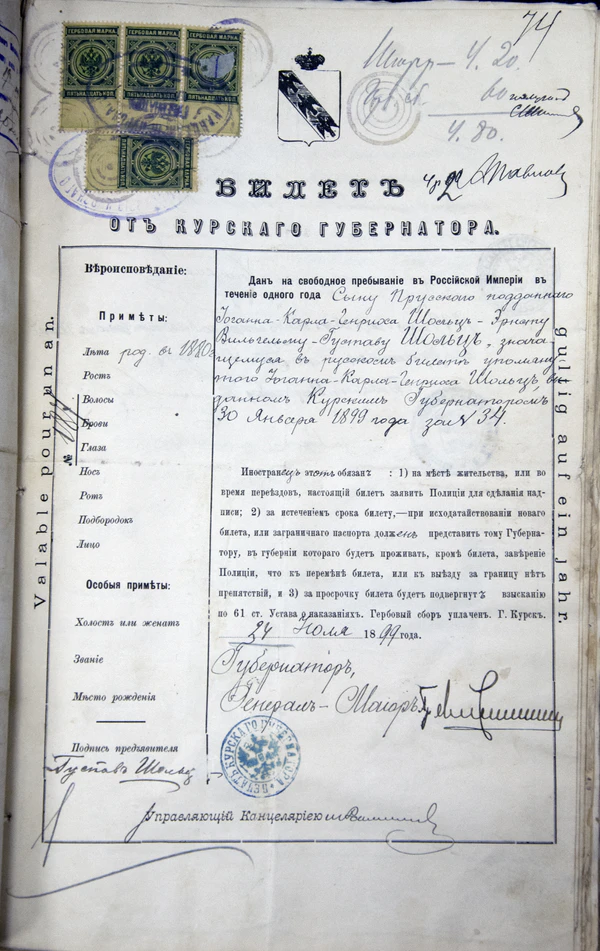 74
ГЕРБОВАЯ МАРКА ГЕРБОВАЯ МАРКА ГЕРБОВАЯ МАРКА
ПЯТЬНАДЦАТЬ КОП. ПЯТЬНАДЦАТЬ КОП. ПЯТЬНАДЦАТЬ КОП.
ч. 20.
ч. 80.
БИЛЕТЪ
Павлов
ОТЪ КУРСКАГО ГУБЕРНАТОРА.
Вѣроисповѣданіе:
Примѣты:
Лѣта род. въ 1880 г.
Ростъ
Волосы
Брови
Глаза
Носъ
Ротъ
Подбородокъ
Лицо
Особыя примѣты:
Холостъ или женатъ
Званіе
Мѣсто рожденія
Подпись предъявителя
Густавъ Шольц
Valable pour un an.
№
Данъ на свободное пребываніе въ Россійской Имперіи въ
теченіе одного года Сыну Прусскаго подданнаго
Іоганна-Карла-Генриха Шольцъ-Эрнсту
Вильгельму-Густаву Шольцъ, знача-
щемуся въ русскомъ билетѣ упомяну-
таго Іоганна-Карла-Генриха Шольцъ, вы-
данномъ Курскимъ Губернаторомъ
30 Января 1899 года за № 34.
Иностранецъ этотъ обязанъ: 1) на мѣстѣ жительства, или во
время переѣздовъ, настоящій билетъ заявить Полиціи для сдѣланія над-
писи; 2) за истеченіемъ срока билету,—при исходатайствованіи новаго
билета, или заграничнаго паспорта долженъ представить тому Губерна-
тору, въ губерніи котораго будетъ проживать, кромѣ билета, завѣреніе
Полиціи, что къ перемѣнѣ билета, или къ выѣзду за границу нѣтъ
препятствій, и 3) за просрочку билета будетъ подвергнутъ взысканію
по 61 ст. Устава о наказаніяхъ. Гербовый сборъ уплаченъ. Г. Курскъ.
24 Іюля 1899 года.
Губернаторъ,
Генералъ-Маіоръ
ПЕЧАТЬ КУРСКАГО ГУБЕРНАТОРА
Управляющій Канцеляріею
gultig auf ein jahr.